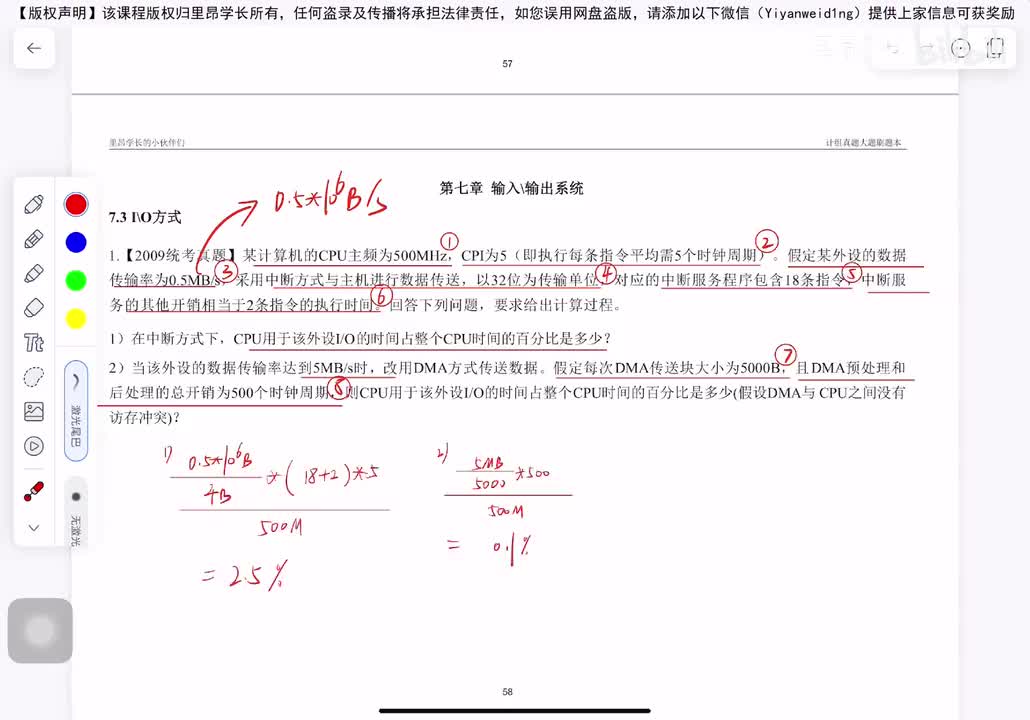 【版权声明】该课程版权归里昂学长所有，任何盗录及传播将承担法律责任，如您误用网盘盗版，请添加以下微信（Yiyanweid1ng）提供上家信息可获奖励
57
里昂学长的小伙伴们
计组真题大题刷题本
第七章 输入\输出系统
0.5*10^6B/s
7.3 I\O方式
1.【2009统考真题】某计算机的CPU主频为500MHz，CPI为5（即执行每条指令平均需5个时钟周期）。假定某外设的数据
传输率为0.5MB/s，采用中断方式与主机进行数据传送，以32位为传输单位，对应的中断服务程序包含18条指令，中断服
务的其他开销相当于2条指令的执行时间。回答下列问题，要求给出计算过程。
① ② ③ ④ ⑤ ⑥
1）在中断方式下，CPU用于该外设I/O的时间占整个CPU时间的百分比是多少？
2）当该外设的数据传输率达到5MB/s时，改用DMA方式传送数据。假定每次DMA传送块大小为5000B，且DMA预处理和
后处理的总开销为500个时钟周期，则CPU用于该外设I/O的时间占整个CPU时间的百分比是多少(假设DMA与 CPU之间没有
访存冲突)？
⑦ ⑧
1)
0.5*10^6B
4B
*(18+2)*5
500M
= 2.5%
2)
5MB
5000
*500
500M
= 0.1%
Tt
激光尾巴
无激光
58